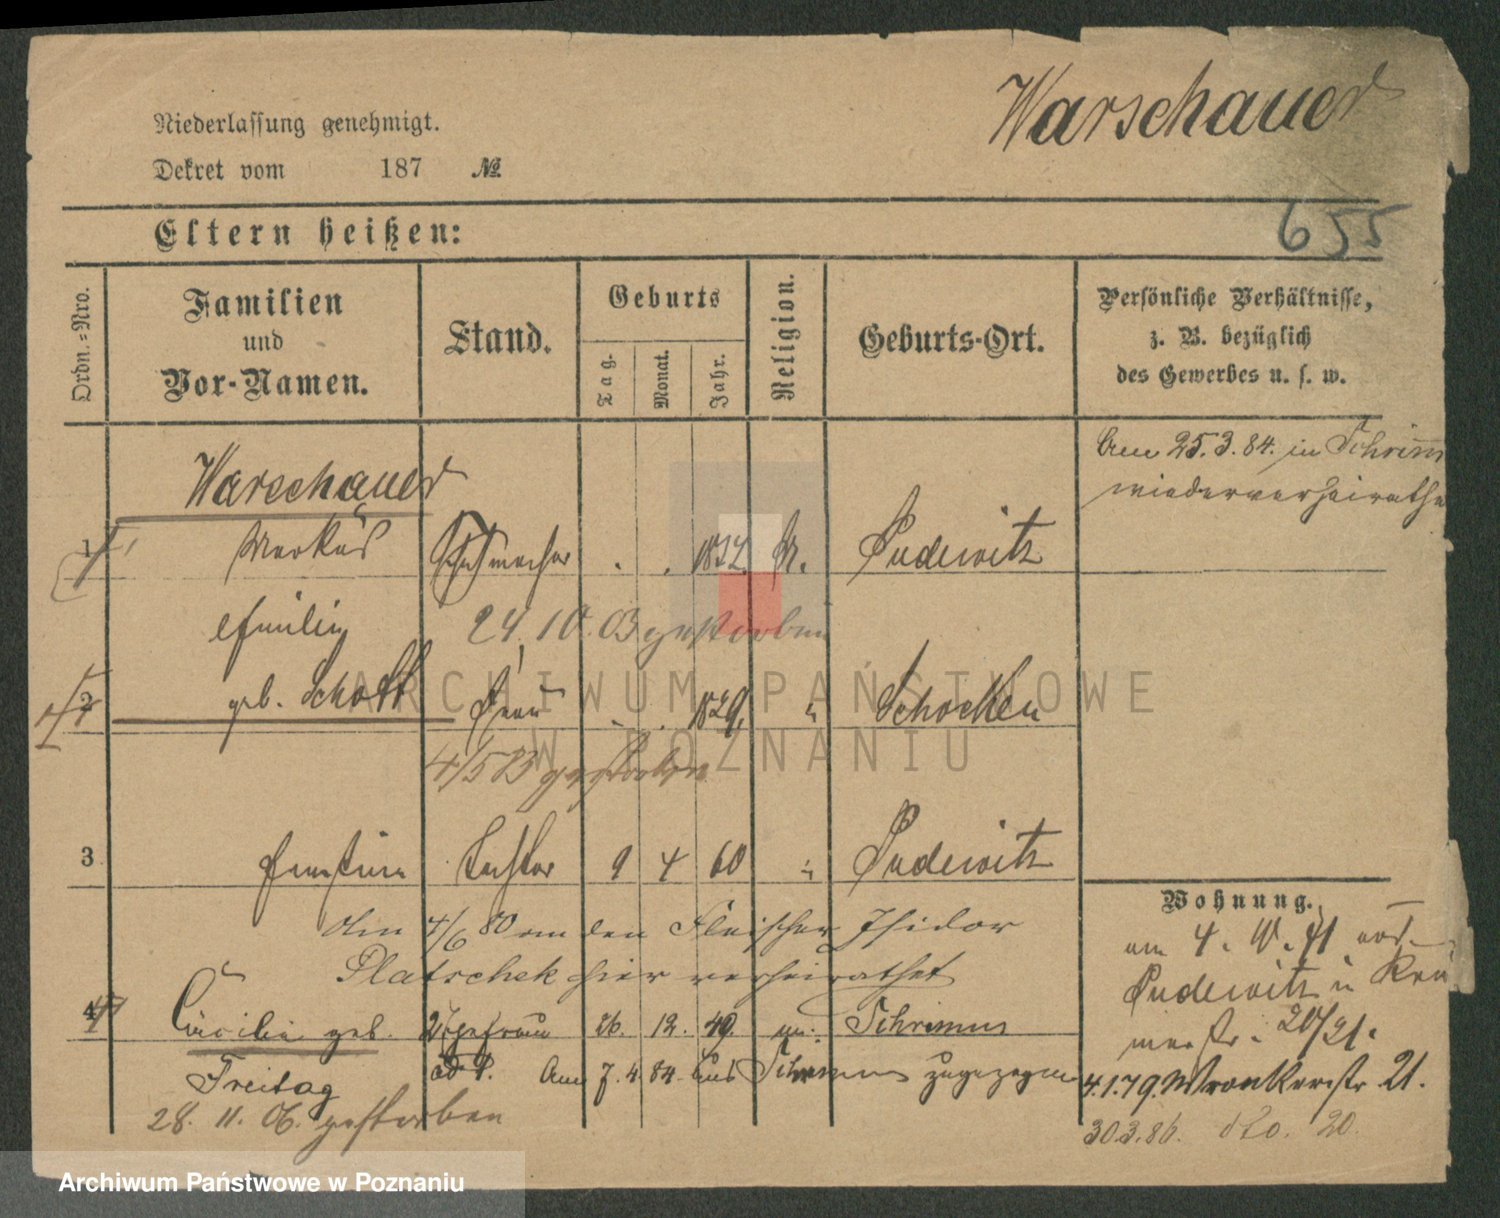 Warschauer
Niederlassung genehmigt.
Dekret vom 187 №
655
Eltern heißen:
Ordn.=Nro.
Familien
und
Vor-Namen.
Stand.
Geburts
Tag.
Monat.
Jahr.
Religion.
Geburts-Ort.
Persönliche Verhältnisse,
z. B. bezüglich
des Gewerbes u. s. w.
Am 25.3.84. in Schrimm
wiederverheirathe
Warschauer
1 Markus Schuhmacher . . M. Pudewitz
24.10.03 gestorben
2 geb. Schott Frau . . 1829. " Schocken
gestorben
3 Ernstine Tochter 9 4 60 " Pudewitz
Am 4/6 80 an den Fleischer Isidor
Platschek hier verheirathet
4 Cäcilie geb. Ehefrau 26. 12. 49. Schrimm
Freitag ad 1. Am 7.4.84. aus Schrimm zugezogen
28. 11. 06. gestorben
Wohnung.
am 4. 10. 71 aus
Pudewitz
20/21.
4.1.79. Wronkerstr. 21.
30.3.86. dto. 20.
ARCHIWUM PAŃSTWOWE
W POZNANIU
Archiwum Państwowe w Poznaniu